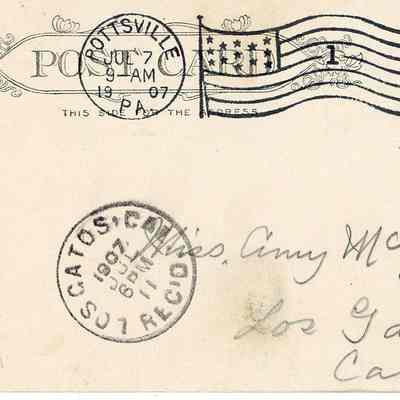 POST CARD
POTTSVILLE
JUL 7
9 AM
1907
PA.
1
THIS SIDE FOR THE ADDRESS
LOS GATOS, CAL.
1907
JUL
11
6 PM
REC'D
Miss. Amy Mc
Los Ga
Ca